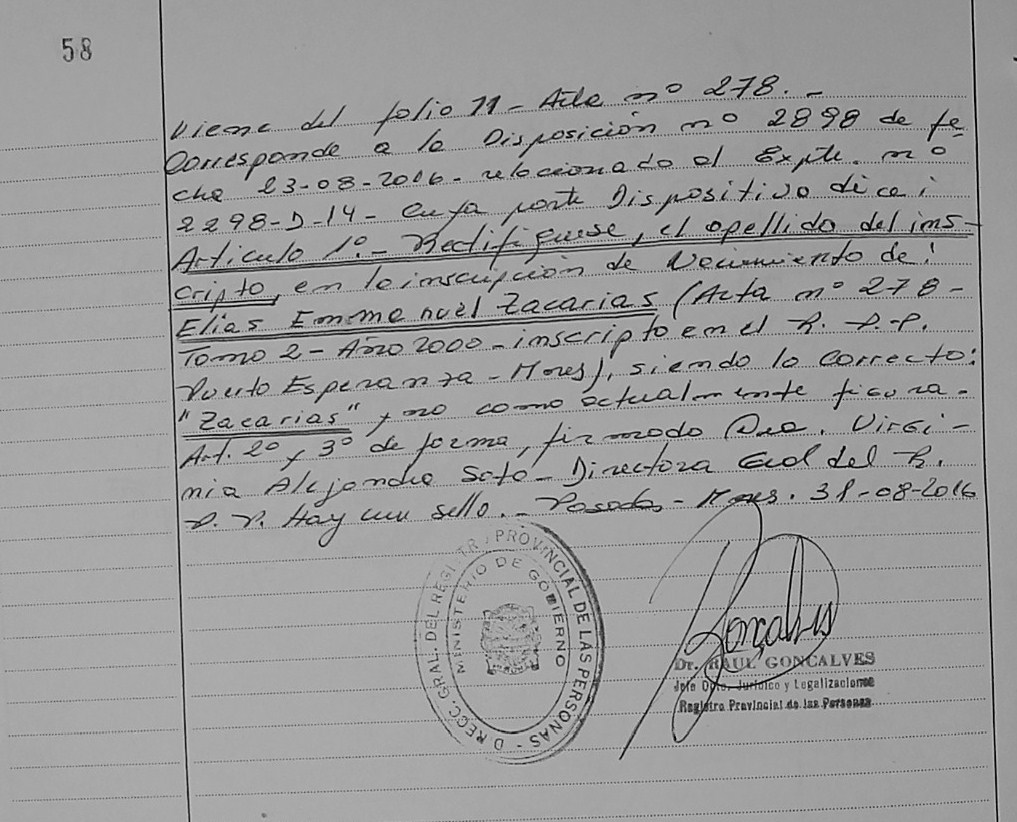 58
Viene del folio 11 - Acta nº 278. -
Corresponde a la Disposición nº 2898 de fe
cha 23-08-2016 - relacionado al Expte. nº
2298-D-14 - Cuya parte Dispositiva dice:
Articulo 1º. - Rectifiquese, el apellido del ins-
cripto, en la inscripción de Nacimiento de:
Elias Emmanuel Zacarias (Acta nº 278 -
Tomo 2 - Año 2000 - inscripto en el R. P. P.
Puerto Esperanza - Mnes), siendo lo correcto:
"Zacarias" y no como actualmente figura -
Art. 2º y 3º de forma, firmado Dra. Virgi -
nia Alejandra Soto - Directora Gral del R.
P. P. Hay un sello. - Posadas - Mnes. 31-08-2016
DIRECC. GRAL. DEL REGISTR. PROVINCIAL DE LAS PERSONAS -
MINISTERIO DE GOBIERNO
Goncalves
Dr. RAUL GONCALVES
Jefe Dpto. Jurídico y Legalizaciones
Registro Provincial de las Personas